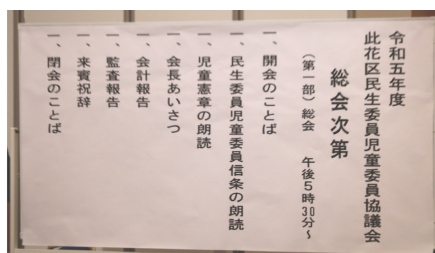 令和五年度
此花区民生委員児童委員協議会
総会次第
（第一部）総会　午後５時30分～
一、開会のことば
一、民生委員児童委員信条の朗読
一、児童憲章の朗読
一、会長あいさつ
一、会計報告
一、監査報告
一、来賓祝辞
一、閉会のことば